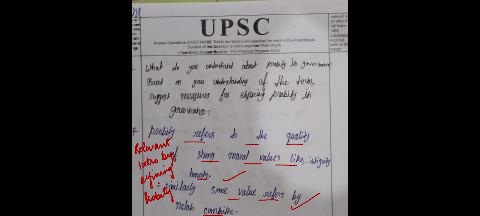 UPSC
Answer Questions in NOT MORE THAN the Word Limit specified for each in the Parenthesis.
Content of the Question is more important than length.
What do you understand about probity in governance?
Based on your understanding of the term,
suggest measures for ensuring probity in
governance.
Probity refers to the quality
of strong moral values like integrity
honesty.
Similarly same value refers by
Nolan committe
Relevant
intro by
defining
Probity